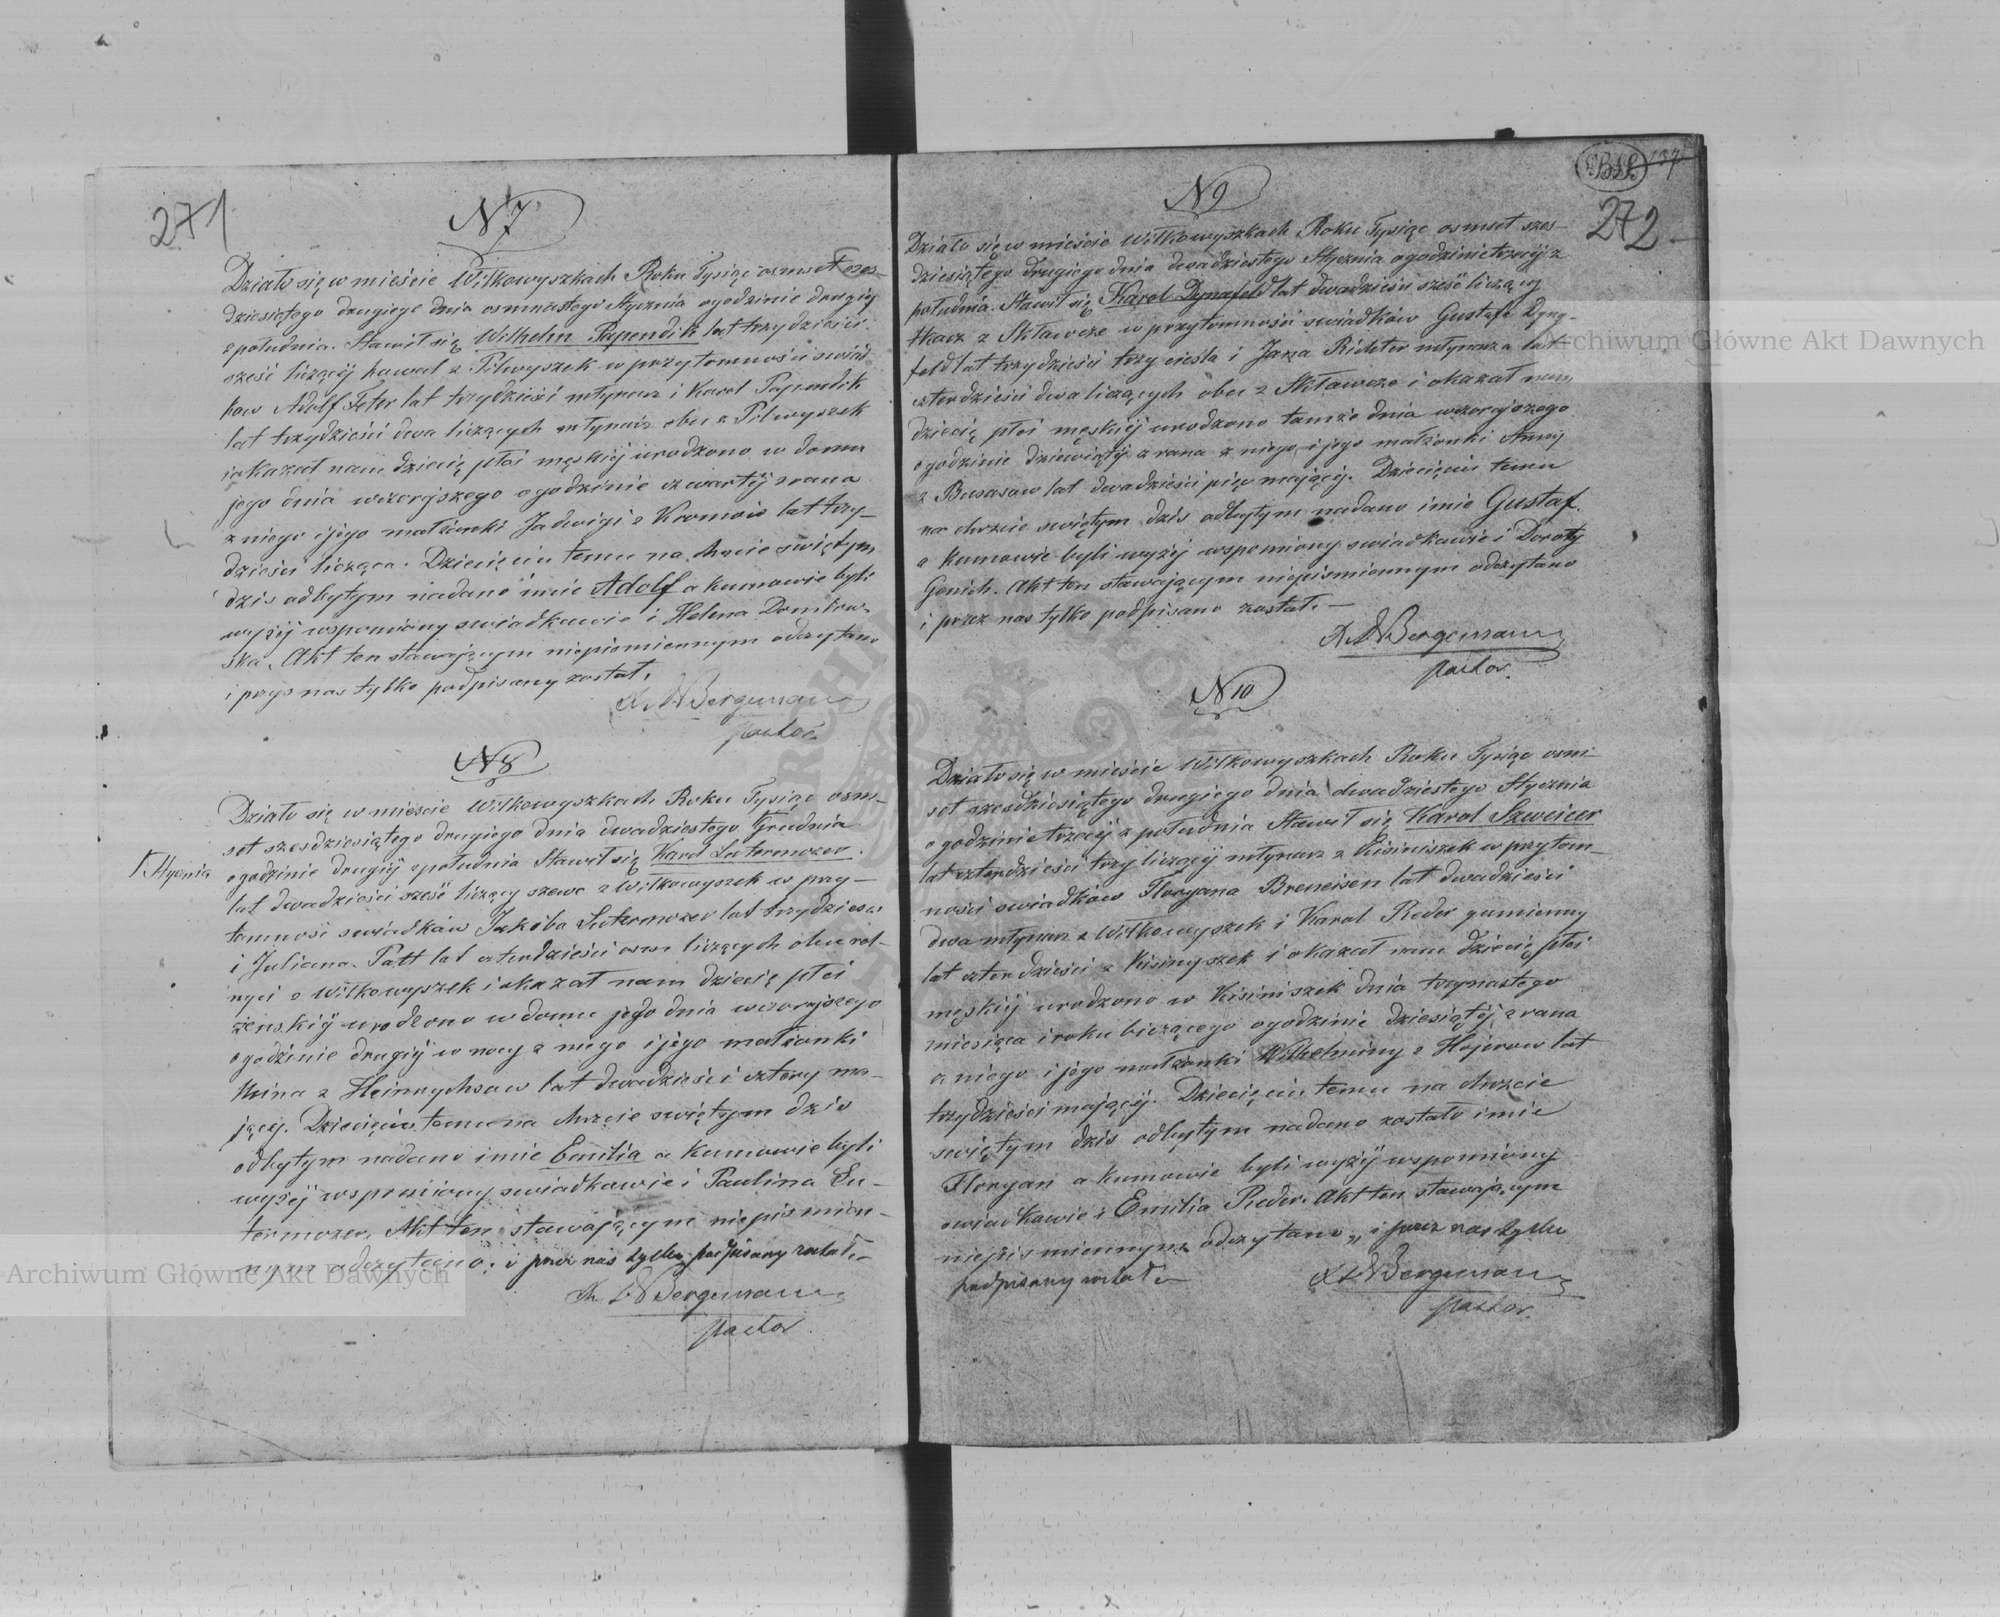 271
N 7
Działo się w mieście Wiłkowyszkach Roku Tysiąc osmset szes-
dziesiątego drugiego dnia osmnastego Stycznia ogodzinie drugiéj
z południa. Stawił się Wilhelm Papendik lat trzydzieści
sześć liczący z Pilwyszek w przytomności świad-
kow Adolf Feter lat trzydzieści młynarz i Karol Papendik
lat trzydzieści dwa liczących młynarz obu z Pilwyszek
i okazał nam dziecię płci męskiéj urodzone w domu
jego dnia wczorajszego ogodzinie czwartéj zrana
z niego i jego małżonki Jadwigi z lat trzy-
dzieści licząca. Dziecięciu temu na chrzcie świętym
dzis odbytym nadano imie Adolf a kumowie byli
wyżéj wspomiony swiadkowie i Helena Dombrow-
ska. Akt ten stawającym niepismiennym odczytano
i przys nas tylko podpisany został.
Bergemann
pastor
N 8
Działo się w mieście Wiłkowyszkach Roku Tysiąc osm-
set szesdziesiątego drugiego dnia dwadziestego Grudnia
Stycznia
ogodzinie drugiéj z południa Stawił się Karol Lutermozer.
lat dwadzieści sześć liczący szewc z Wiłkowyszek w przy-
tomnosi swiadków Jakóba Lutermozer lat trzydzieści
i Juliana Patt lat czterdzieści osm liczących obu rol-
nyci z Wiłkowyszek i okazał nam dziecię płci
żenskiéj urodzono w domu jego dnia wczorajszego
ogodzinie drugiéj w nocy z niego i jego małżonki
Mina z Heinrychsow lat dwadzieści cztery ma-
jącej. Dziecięciu temu na chrzcie świętym dzis
odbytym nadano imie Emilia a Kumowie byli
wyżej wspomiony swiadkowie i Paulina Lu-
termozer. Akt ten stawającym niepismien-
nym odczytano. i przez nas tylko podpisany został.
Bergemann
pastor.
137
272
N 9
Działo się w mieście Wiłkowyszkach Roku Tysiąc osmset szes-
dziesiątego drugiego dnia dwadziestego Stycznia ogodzinie trzeciéj z
południa. Stawił się Karol Dynafeld lat dwadzieści sześć liczący
tkacz z Skławcze w przytomności swiadków Gustafa Dyna-
feld lat trzydzieści trzy cieśla i Jana Richter młynarza lat
czterdzieści dwa liczących obu z Skławcze i okazał nam
dziecię płci męskiéj urodzono tamże dnia wczorajszego
ogodzinie dziewiątéj zrana z niego i jego małżonki Anny
z lat dwadzieści pięć mającéj. Dziecięciu temu
na chrzcie świętym dzis odbytym nadano imie Gustaf.
a Kumowie byli wyżéj wspomiony swiadkowie i Doroty
Genich. Akt ten stawającym niepismiennym odczytano
i przez nas tylko podpisano został. —
Bergemann
pastor.
N 10
Działo się w mieście Wiłkowyszkach Roku Tysiąc osm-
set szesdziesiątego drugiego dnia dwadziestego Stycznia
ogodzinie trzeciéj z południa Stawił się Karol Szweicer
lat czterdzieści trzy liczącÿ młynarz z Kisiniszek w przytom-
ności swiadków Floryana Breneisen lat dwadzieści
dwa młynarz z Wiłkowyszek i Karol Reder gumienny
lat czterdzieści z Kisinyszek i okazał nam dziecię płci
męskiéj urodzono w Kisiniszek dnia trzynastego
miesiąca i roku bieżącego ogodzinie dziesiątéj zrana
z niego i jego małżonki Wilhelminy z Hojerow lat
trzydzieści mającéj. Dziecięciu temu na chrzcie
swiętym dzis odbytym nadano zostało imie
Floryan a kumowie byli wyżéj wspomiony
swiadkowie i Emilia Reder. Akt ten stawającym
niepismiennym odczytano, i przez nas tylko
podpisany został —
Bergemann
pastor.
Archiwum Główne Akt Dawnych
Archiwum Główne Akt Dawnych